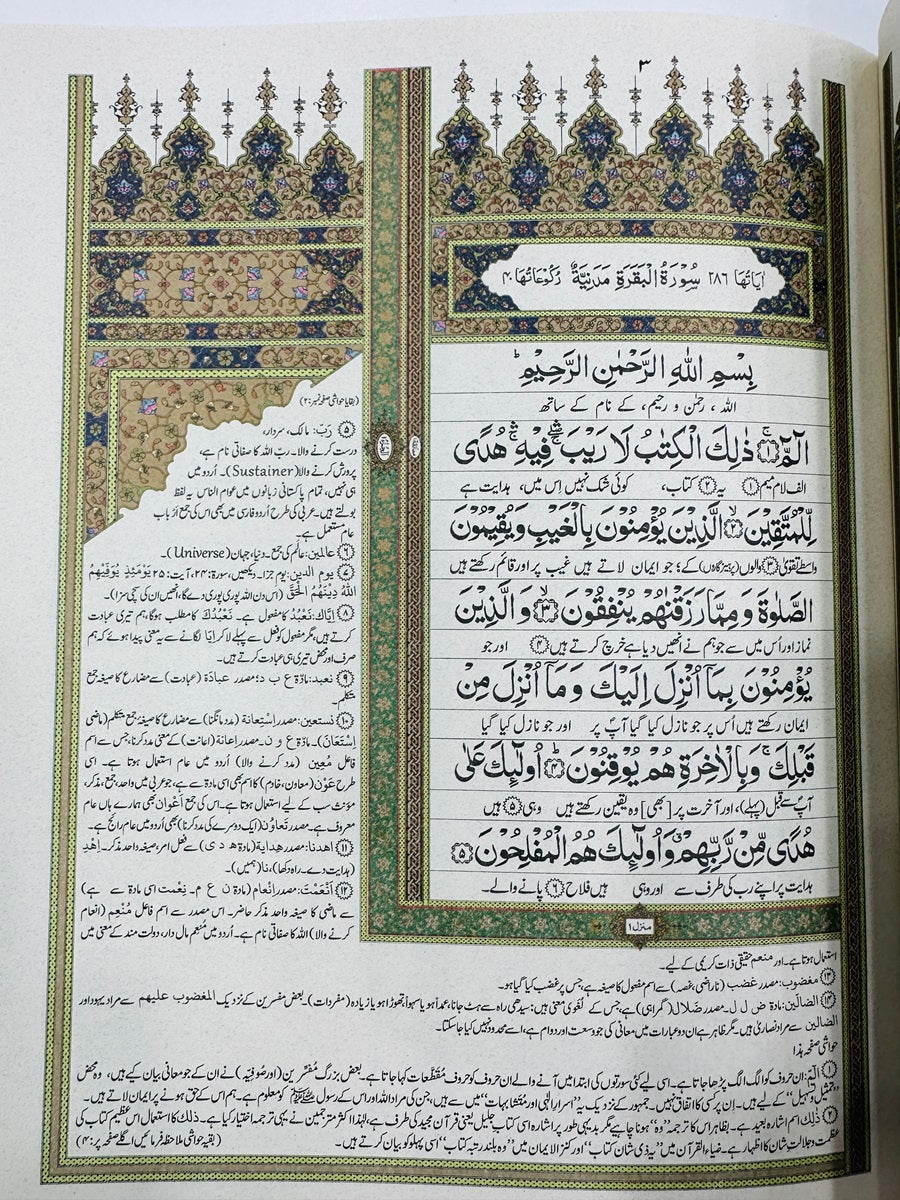 ۳
اٰیَاتُهَا ۲۸۶ سُوْرَةُ الْبَقَرَةِ مَدَنِیَّةٌ رُكُوْعَاتُهَا ۴۰
بِسْمِ اللّٰهِ الرَّحْمٰنِ الرَّحِیْمِ ؕ
اللہ ، رحمٰن و رحیم، کے نام کے ساتھ
الٓمّٓ ۚ﴿۱﴾ ذٰلِكَ الْكِتٰبُ لَا رَیْبَ ۛۚ فِیْهِ ۛۚ هُدًی
الف لام میم ① یہ ② کتاب، کوئی شک نہیں اِس میں، ہدایت ہے
لِّلْمُتَّقِیْنَ ۙ﴿۲﴾ الَّذِیْنَ یُؤْمِنُوْنَ بِالْغَیْبِ وَ یُقِیْمُوْنَ
واسطے تقویٰ ③ والوں (پرہیزگاروں) کے؛ جو ایمان لاتے ہیں غیب پر اور قائم رکھتے ہیں
الصَّلٰوةَ وَ مِمَّا رَزَقْنٰهُمْ یُنْفِقُوْنَ ۙ﴿۳﴾ وَ الَّذِیْنَ
نماز اور اُس میں سے جو ہم نے انھیں دیا ہے خرچ کرتے ہیں ④ اور جو
یُؤْمِنُوْنَ بِمَاۤ اُنْزِلَ اِلَیْكَ وَ مَاۤ اُنْزِلَ مِنْ
ایمان رکھتے ہیں اُس پر جو نازل کیا گیا آپؐ پر اور جو نازل کیا گیا
قَبْلِكَ ۚ وَ بِالْاٰخِرَةِ هُمْ یُوْقِنُوْنَ ؕ﴿۴﴾ اُولٰٓئِكَ عَلٰی
آپؐ سے قبل (پہلے)، اور آخرت پر [بھی] وہ یقین رکھتے ہیں وہی ⑤ ہیں
هُدًی مِّنْ رَّبِّهِمْ ۗ وَ اُولٰٓئِكَ هُمُ الْمُفْلِحُوْنَ ﴿۵﴾
ہدایت پر اپنے رب کی طرف سے اور وہی ہیں فلاح ⑥ پانے والے۔
منزل ۱
(بقایا حواشی صفحہ نمبر: ۲)
⑤ رَبّ: مالک، سردار،
درست کرنے والا۔ ربّ اللہ کا صفاتی نام ہے،
پرورش کرنے والا (Sustainer)۔ اُردو میں
ہی نہیں، تمام پاکستانی زبانوں میں عوام الناس یہ لفظ
بولتے ہیں۔ عربی کی طرح اُردو فارسی میں بھی اس کی جمع اَرباب
عام مستعمل ہے۔
⑥ عالمین: عالَم کی جمع۔ دنیا، جہان (Universe)۔
⑦ یوم الدین: یومِ جزا۔ دیکھیں، سورۃ: ۲۴، آیت: ۲۵ یَوْمَئِذٍ یُّوَفِّیْهِمُ
اللّٰهُ دِیْنَهُمُ الْحَقَّ (اس دن اللہ پوری پوری دے گا، اُنھیں ان کی سچی سزا)۔
⑧ اِیَّاكَ: نَعْبُدُ کا مفعول ہے۔ نَعْبُدُكَ کا مطلب ہوگا، ہم تیری عبادت
کرتے ہیں، مگر مفعول کو فعل سے پہلے لا کر اِیَّا لگانے سے یہ معنی پیدا ہوئے کہ ہم
صرف اور محض تیری ہی عبادت کرتے ہیں۔
⑨ نعبد: مادّہ ع ب د؛ مصدر عبادَة (عبادت) سے مضارع کا صیغہ جمع
متکلم۔
⑩ نستعین: مصدر اِسْتِعانة (مدد مانگنا) سے مضارع کا صیغۂ جمع متکلم (ماضی
اِسْتَعَانَ)۔ مادّہ ع و ن۔ مصدر اِعانة (اعانت) کے معنی مدد کرنا، جس سے اسم
فاعل مُعِین (مدد کرنے والا) اُردو میں عام استعمال ہوتا ہے۔ اسی
طرح عَوْن (معاون، خادم) کا اسم بھی اسی مادّہ سے ہے، جو عربی میں واحد، جمع، مذکر،
مؤنث سب کے لیے استعمال ہوتا ہے۔ اس کی جمع اَعْوان بھی ہمارے ہاں عام
معروف ہے۔ مصدر تَعاوُن (ایک دوسرے کی مدد کرنا) بھی اُردو میں عام رائج ہے۔
⑪ اهدنا: مصدر هِدایة (مادّہ ہ د ی) سے فعل امر، صیغہ واحد مذکر۔ اِهْدِ
(ہدایت دے۔ راہ دکھا)، نا (ہمیں)۔
⑫ اَنْعَمْتَ: مصدر اِنْعام (مادّہ ن ع م۔ نِعْمت اسی مادّہ سے ہے)
سے ماضی کا صیغہ واحد مذکر حاضر۔ اس مصدر سے اسم فاعل مُنْعِم (انعام
کرنے والا) اللہ کا صفاتی نام ہے۔ اُردو میں مُنعِم مال دار، دولت مند کے معنی میں
استعمال ہوتا ہے۔ اور منعمِ حقیقی ذاتِ کریمی کے لیے۔
⑬ مغضوب: مصدر غضب (ناراضی، غصہ) سے اسم مفعول کا صیغہ ہے، جس پر غضب کیا گیا ہو۔
⑭ الضالین: مادّہ ض ل ل۔ مصدر ضَلال (گمراہی) ہے، جس کے لُغوی معنی ہیں: سیدھی راہ سے ہٹ جانا، عمداً ہو یا سہواً، تھوڑا ہو یا زیادہ (مفردات)۔ بعض مفسرین کے نزدیک المغضوب علیهم سے مراد یہود اور
الضالین سے مراد نصاریٰ ہیں۔ مگر ظاہر ہے ان دو عبارات میں معانی کی جو وسعت اور دوام ہے، اسے محدود نہیں کیا جا سکتا۔
حواشی صفحہ ہذا
① الٓمّٓ: ان حروف کو الگ الگ پڑھا جاتا ہے۔ اسی لیے کئی سورتوں کی ابتدا میں آنے والے ان حروف کو حروفِ مُقَطَّعات کہا جاتا ہے۔ بعض بزرگ مُفَسِّرین (اور صُوفیّہ) نے ان کے جو معانی بیان کیے ہیں، وہ محض
”تمثیل و تسہیل“ کے لیے ہیں۔ اِن پر کسی کا اتفاق نہیں۔ جمہور کے نزدیک یہ ”اسرارِ الٰہی اور متشابہات“ میں سے ہیں، جن کی مراد اللہ اور اس کے رسول ﷺ کو معلوم ہے۔ ہم اس کے حق ہونے پر ایمان لاتے ہیں۔
② ذلك اسم اشارہ بعید ہے۔ بظاہر اس کا ترجمہ ”وہ“ ہونا چاہیے مگر بدیہی طور پر اشارہ اسی کتابِ جلیل یعنی قرآن مجید کی طرف ہے، لہٰذا اکثر مترجمین نے یہی ترجمہ اختیار کیا ہے۔ ذلك کا استعمال اس عظیم کتاب کی
عظمت و جلالتِ شان کا اظہار ہے۔ ضیاء القرآن میں ”یہ ذی شان کتاب“ اور کنز الایمان میں ”وہ بلند رتبہ کتاب“ اسی پہلو کو بیان کرتے ہیں۔ (بقیہ حواشی ملاحظہ فرمائیں اگلے صفحے پر: ۴)